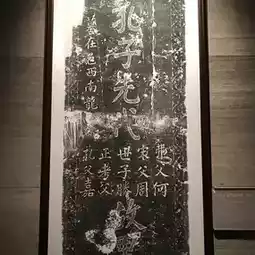 孔子先代
弗父何
宋父周
世子勝
正考父
孔父嘉
在邑西南龍